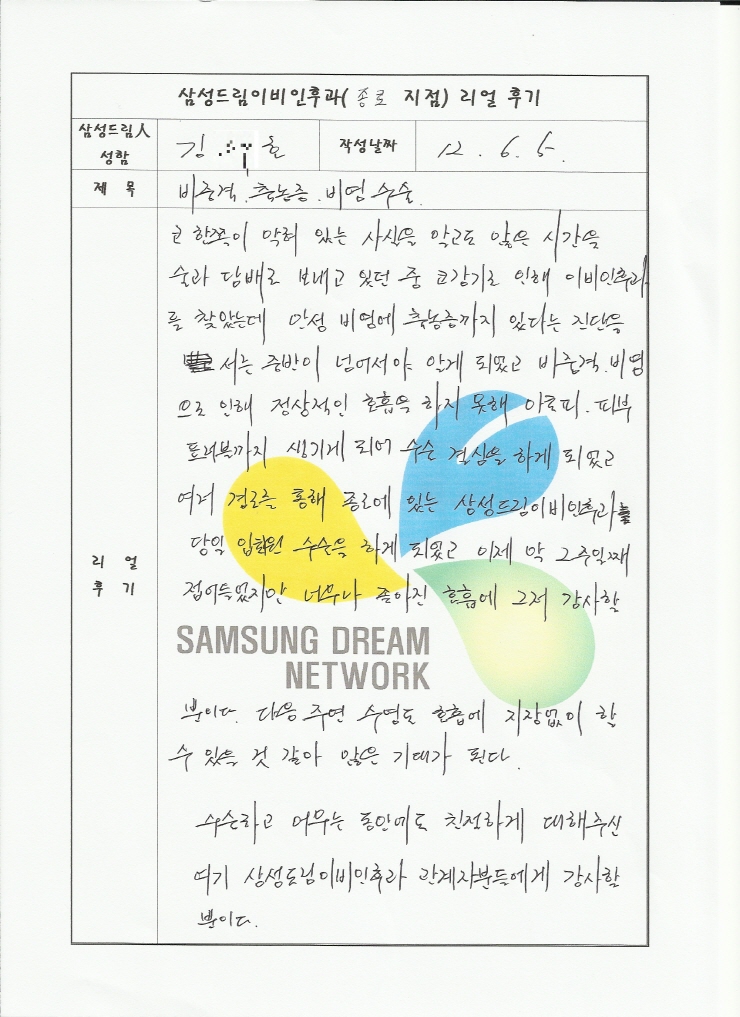 삼성드림이비인후과( 종로 지점) 리얼 후기
삼성드림人
성함
김 호
작성날짜
12. 6. 5.
제 목
비중격. 축농증. 비염 수술.
코 한쪽이 막혀 있는 사실을 알고도 많은 시간을
술과 담배로 보내고 있던 중 코감기로 인해 이비인후과
를 찾았는데 만성 비염에 축농증까지 있다는 진단을
서른 중반이 넘어서야 알게 되었고 비중격.비염
으로 인해 정상적인 호흡을 하지 못해 아토피. 피부
트러블까지 생기게 되어 수술 결심을 하게 되었고
여러 경로를 통해 종로에 있는 삼성드림이비인후과를
당일 입퇴원 수술을 하게 되었고 이제 막 2주일째
접어들었지만 너무나 좋아진 호흡에 그저 감사할
리 얼
후 기
SAMSUNG DREAM
NETWORK
뿐이다. 다음 주면 수영도 호흡에 지장없이 할
수 있을 것 같아 많은 기대가 된다.
수술하고 머무는 동안에도 친절하게 대해주신
여기 삼성드림이비인후과 관계자분들에게 감사할
뿐이다.